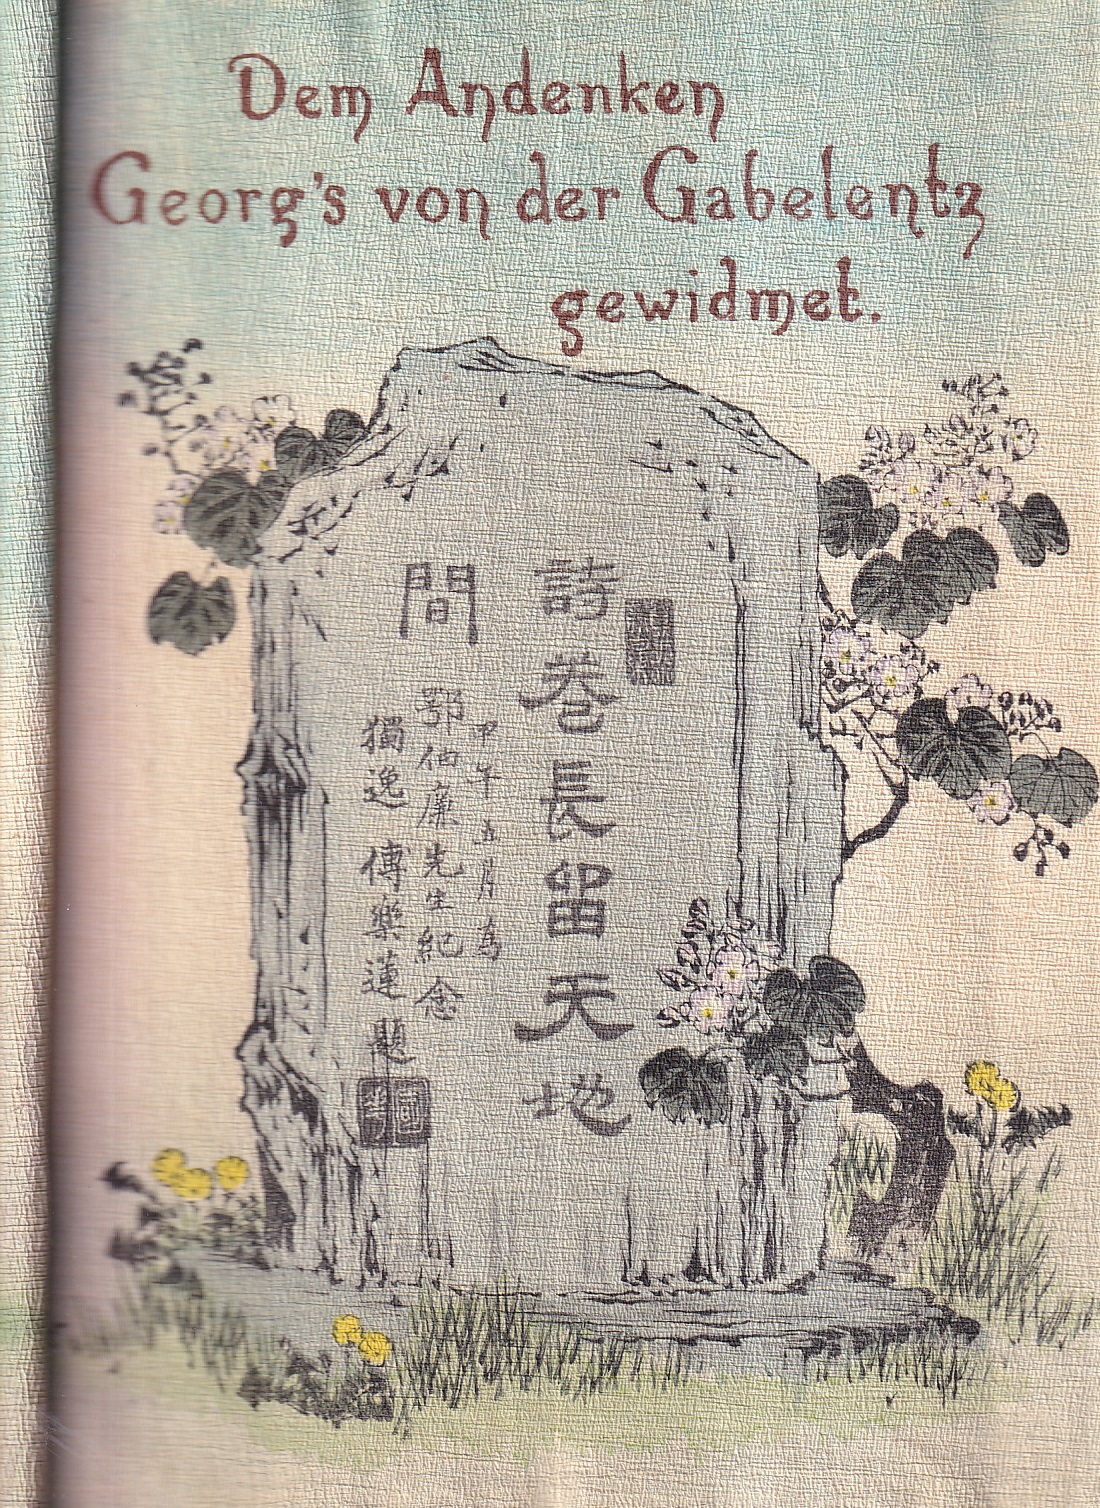 Dem Andenken
Georg's von der Gabelentz
gewidmet.
詩卷長留天地
間
甲午五月為
鄂伯廉先生紀念
獨逸傅樂蓮題